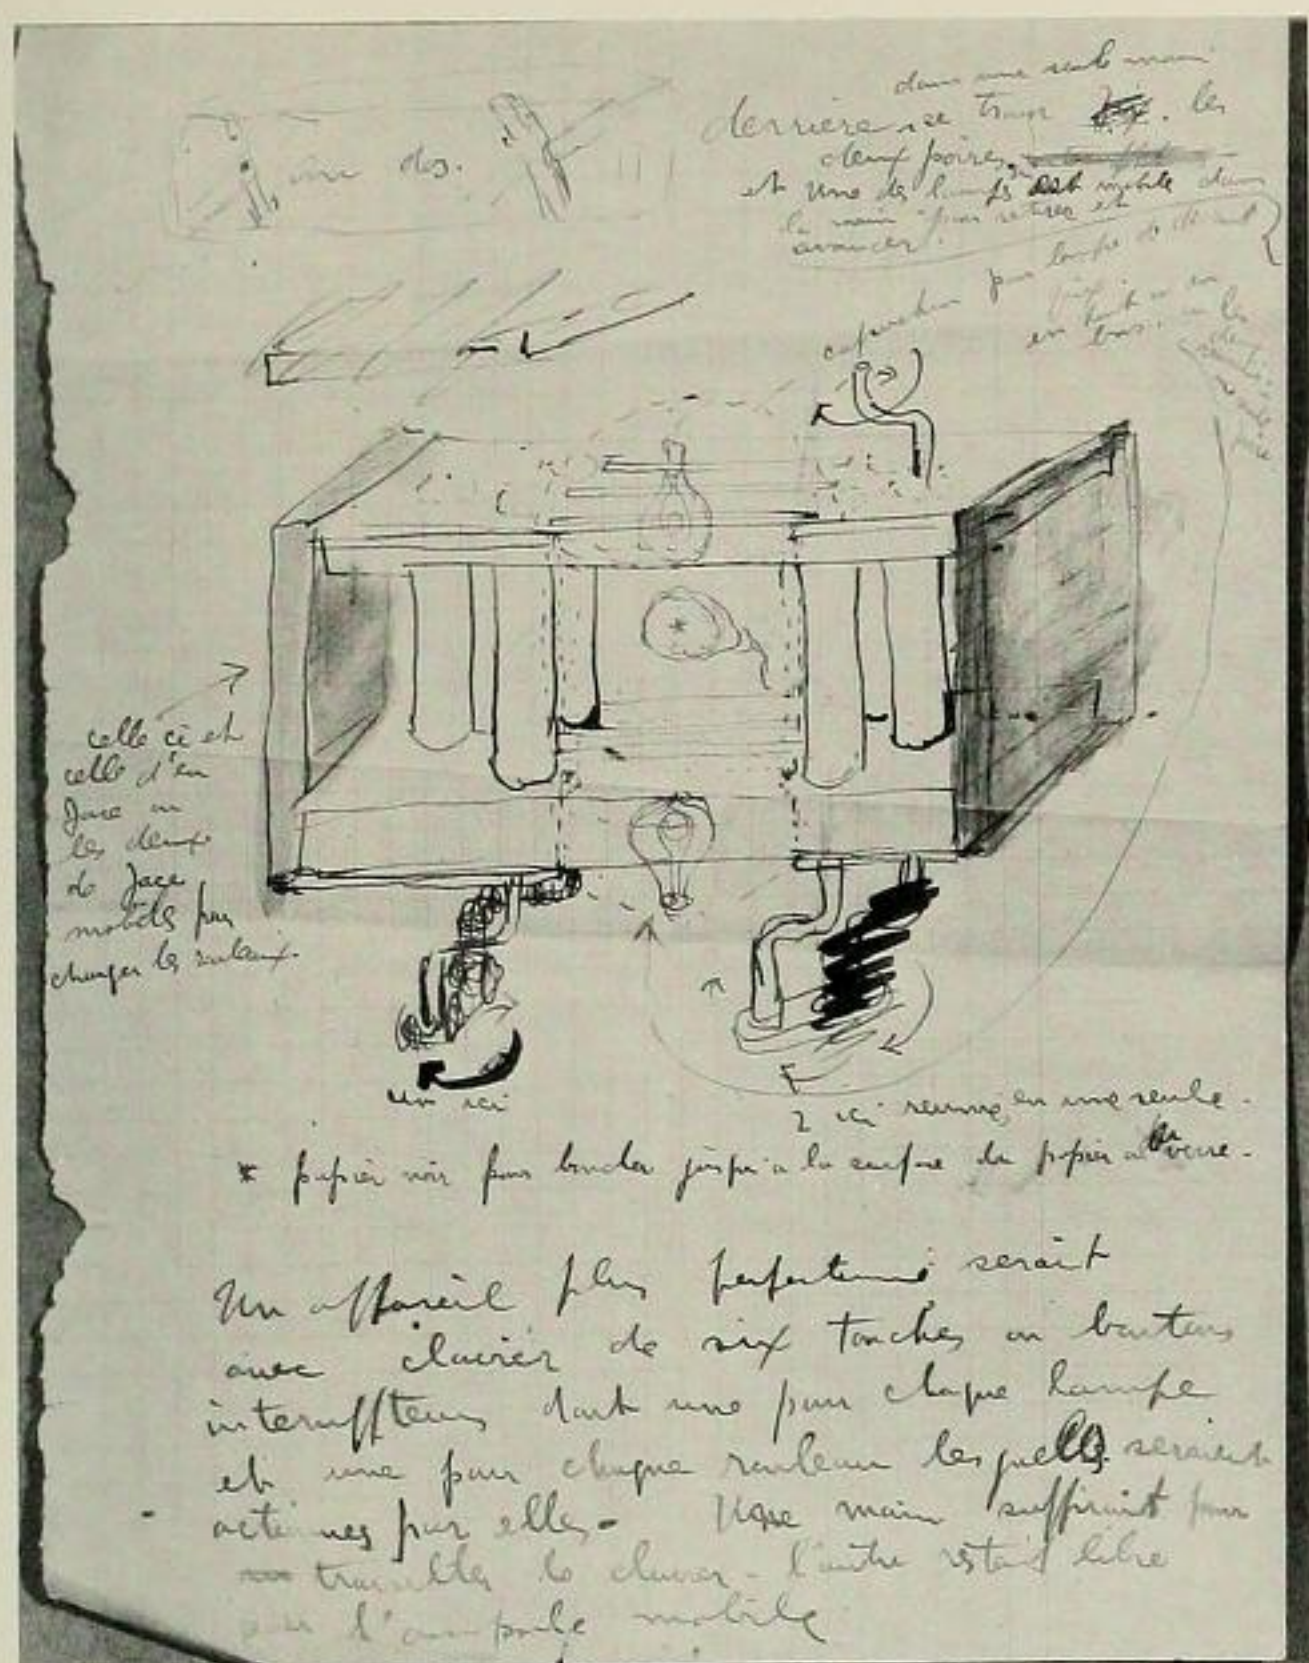 dans une seule main
derrière se trouve les
deux poires
et une des lampes est mobile dans
la main pour retirer et
avancer.
pour lampe de devant
en haut ou en
bas. ou les
deux
au dos.
celle ci et
celle d'en
face ou
les deux
de face
mobiles pour
changer les rouleaux.
un ici
2 ici réunies en une seule.
* papier noir pour jusqu'à la surface du papier verre.
Un appareil plus perfectionné serait
avec clavier de six touches ou boutons
interrupteurs dont une pour chaque lampe
et une pour chaque rouleau lesquelles seraient
actionnés par elles. Une main suffirait pour
travailler le clavier - l'autre restait libre
l'ampoule mobile